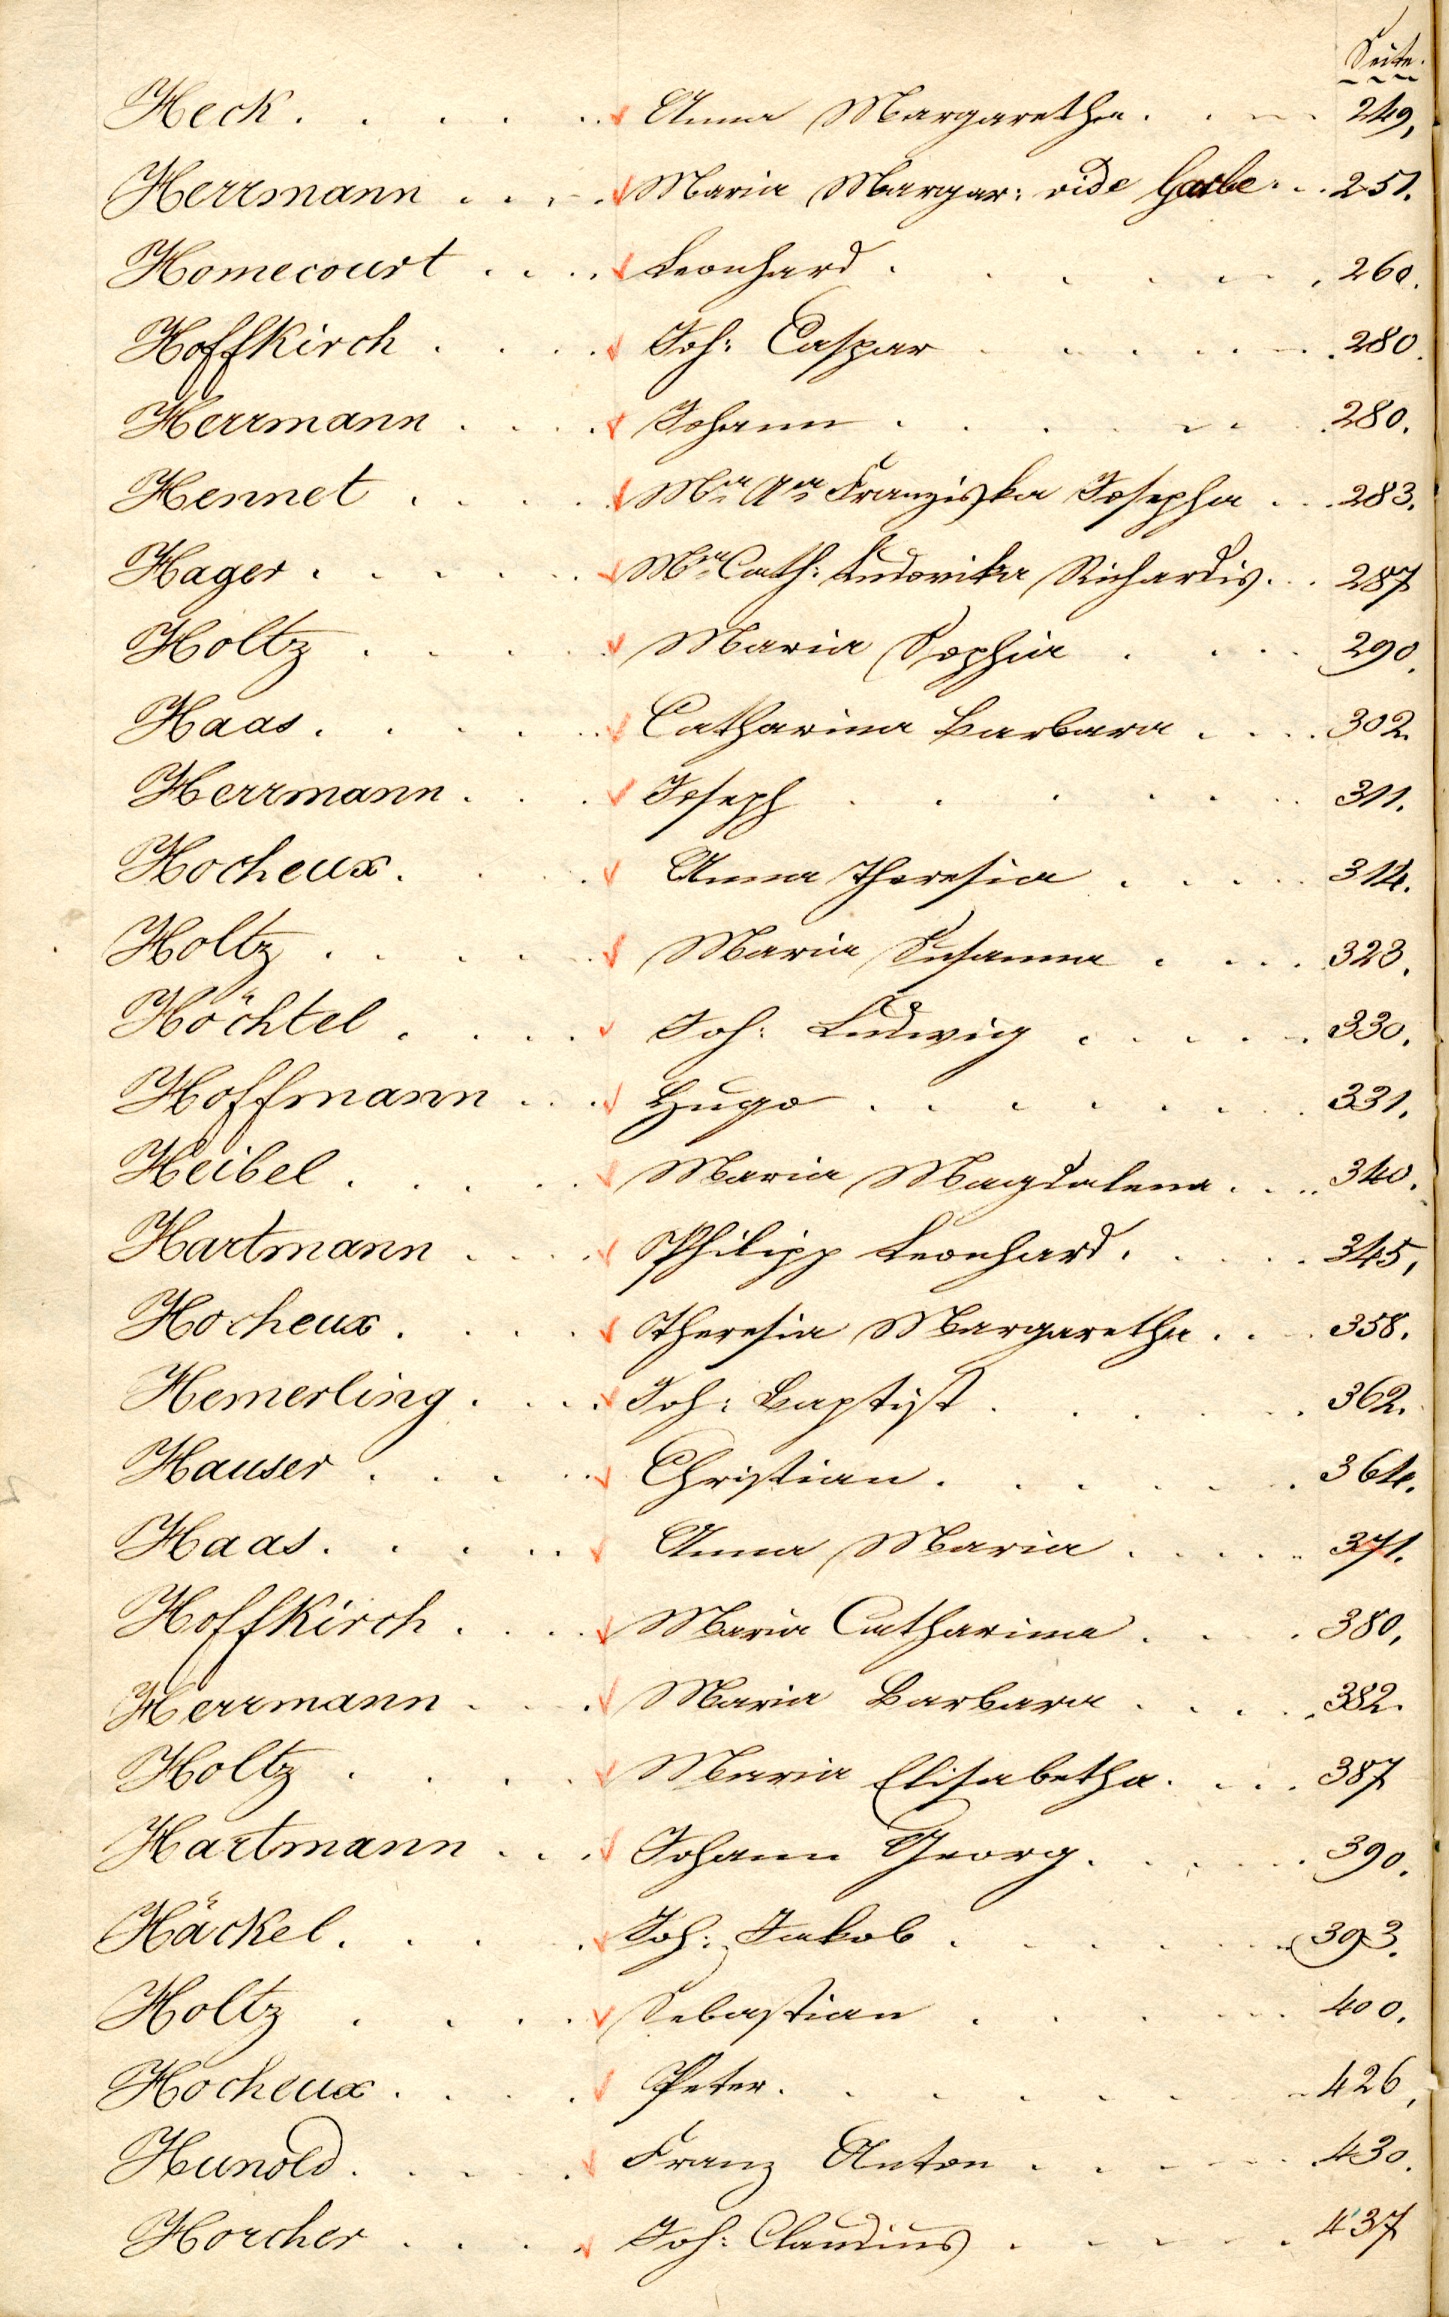 Seite.
Heck. Anna Margaretha. 249,
Herrmann Maria Margar: vide Garbe. 251.
Homecourt Leonhard. 260.
Hoffkirch Joh: Caspar 280.
Herrmann Johann 280.
Hennet Mra Ana Franziska Josepha 283.
Hager Mra Cath: Ludovika Richardis. 287
Holtz Maria Sophia 290.
Haas. Catharina Barbara 302.
Herrmann. Joseph 311.
Hocheux. Anna Theresia 314.
Holtz Maria Susanna 323.
Höchtel Joh: Ludwig 330.
Hoffmann Hugo 331.
Heibel. Maria Magdalena. 340.
Hartmann Philipp Leonhard. 345,
Hocheux. Theresia Margaretha. 358.
Hemerling. Joh: Baptist. 362.
Hauser Christian. 364.
Haas. Anna Maria 371.
Hoffkirch. Maria Catharina 380,
Herrmann Maria Barbara 382.
Holtz Maria Elisabetha. 387
Hartmann Johann Georg. 390.
Häckel. Joh: Jakob 393.
Holtz Sebastian 400.
Hocheux. Peter. 426,
Hunold. Franz Anton 430.
Horcher Joh: Claudius 437